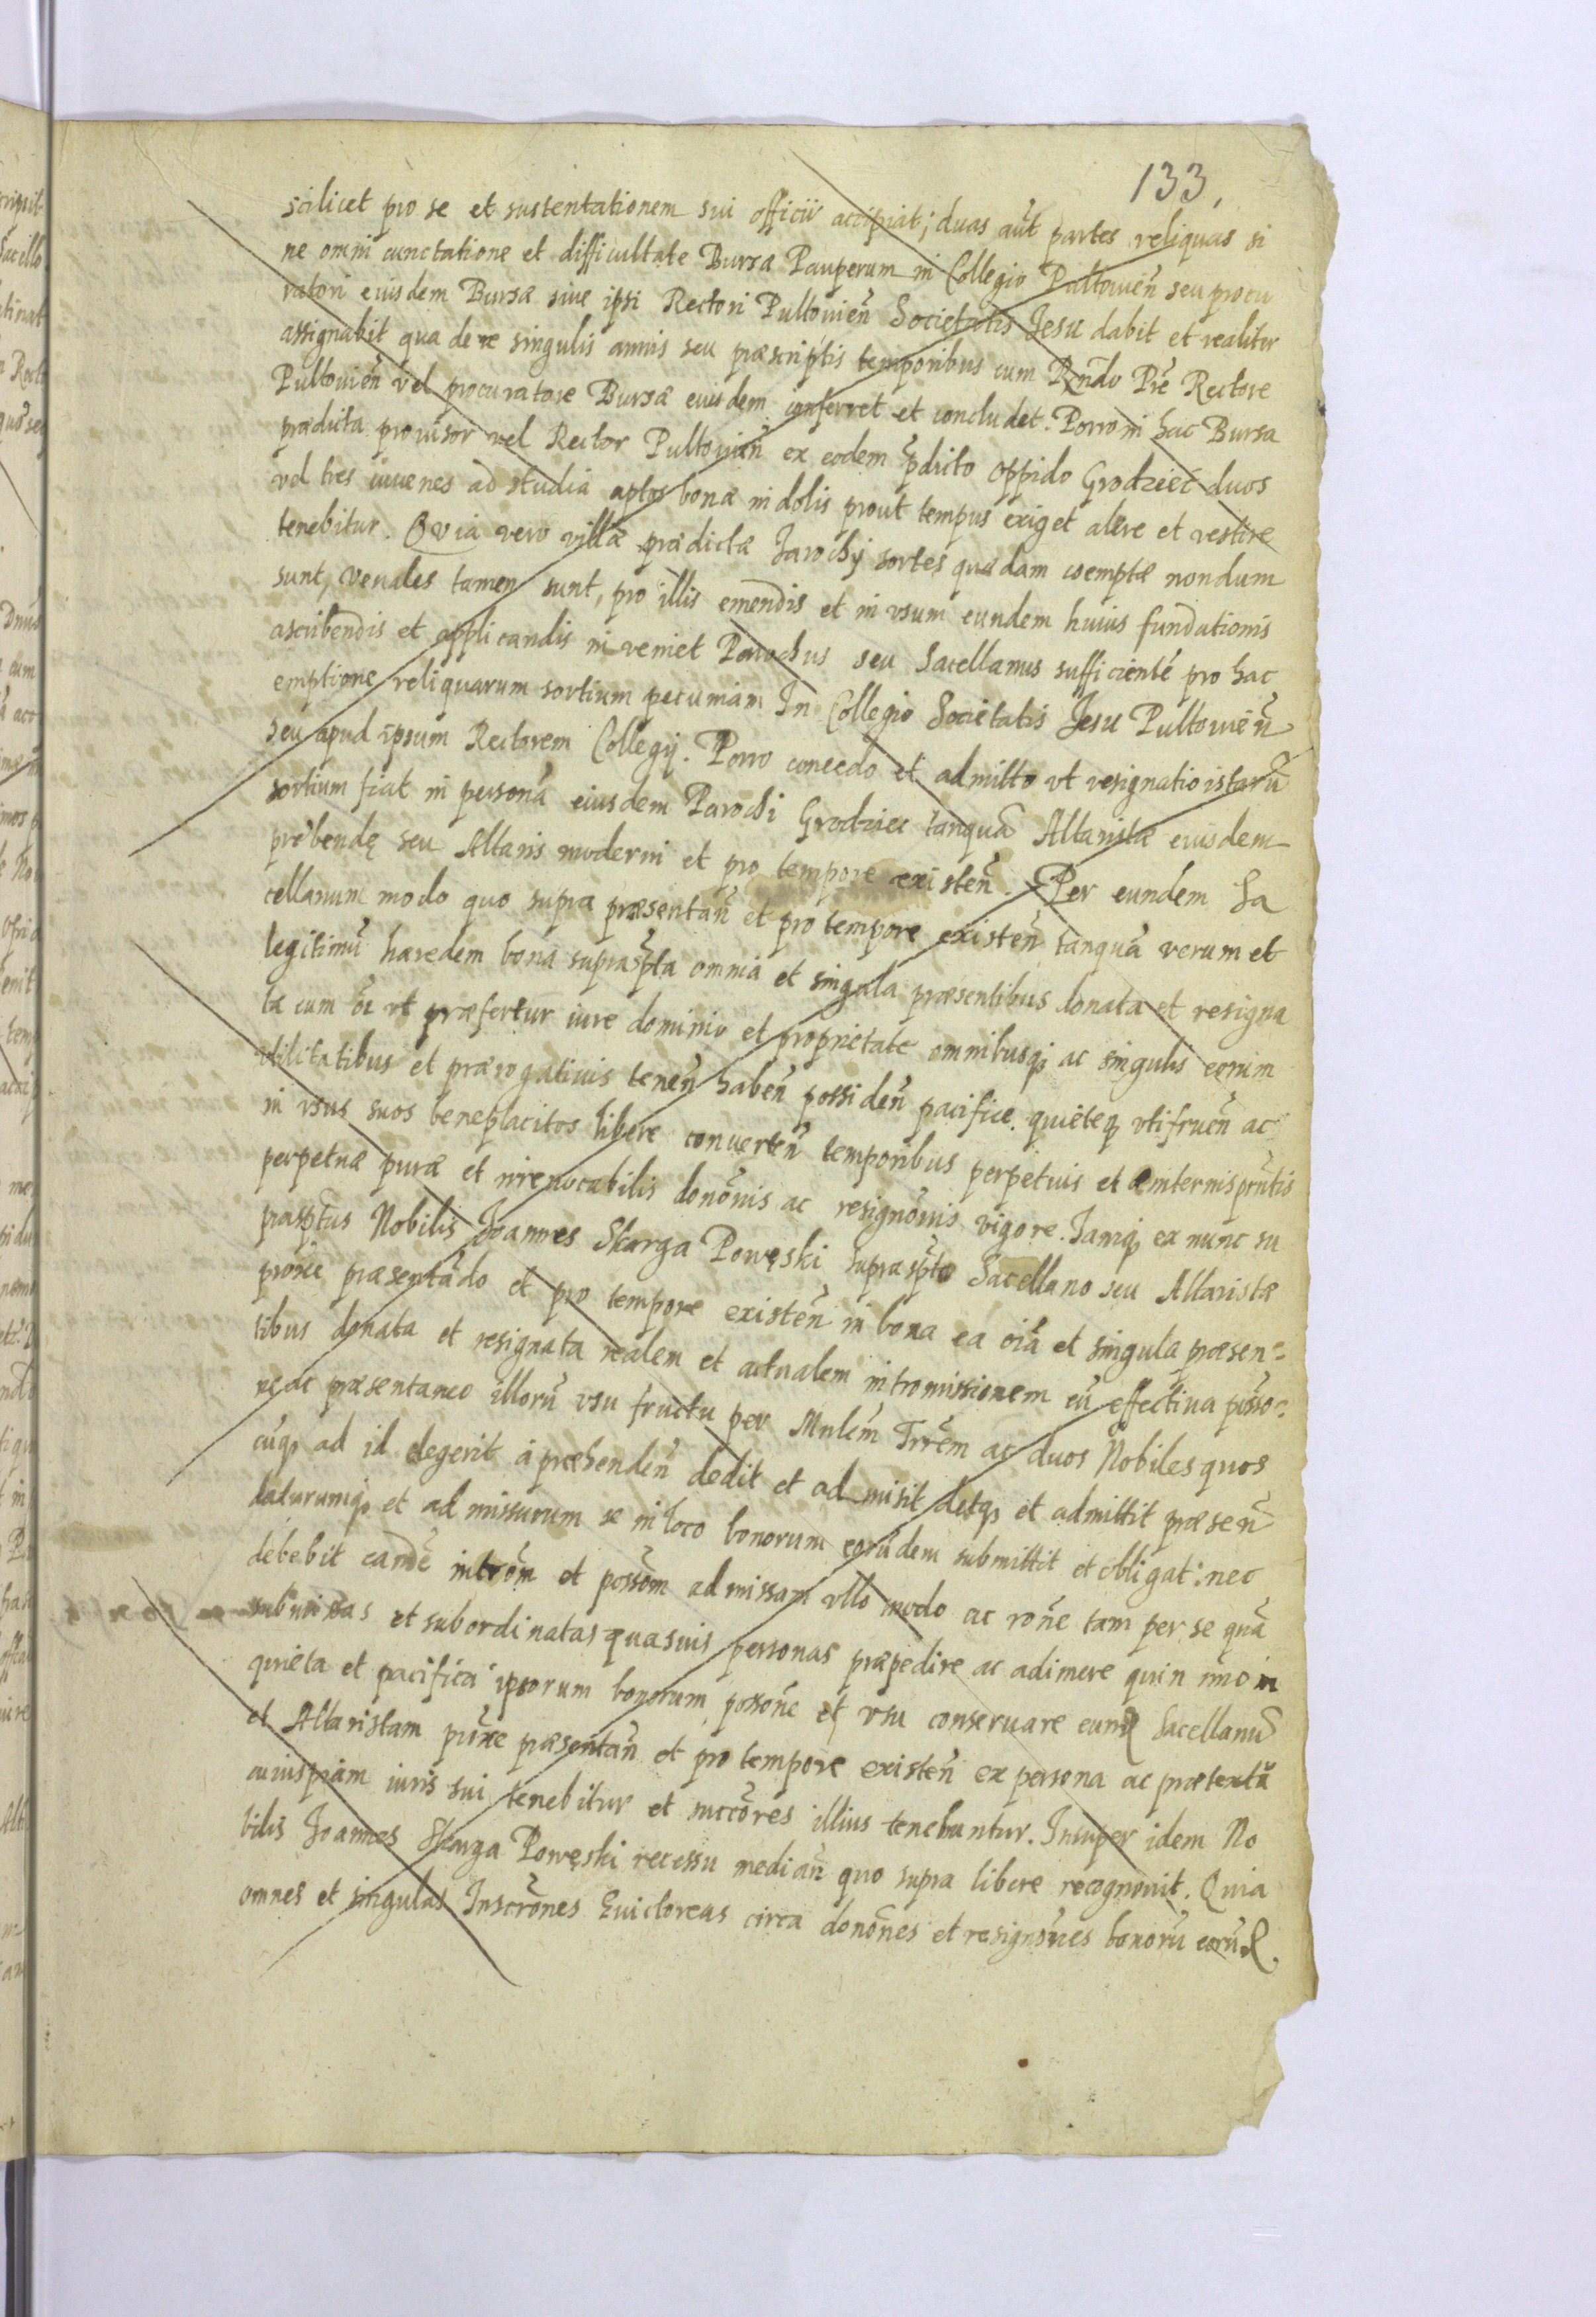 133,
scilicet pro se et sustentationem sui officii accipiat; duas aūt partes reliquas si
ne omni cunctatione et difficultate Bursæ Pauperum in Collegio Pultouień seu procu
ratori eiusdem Bursæ siue ipsi Rectori Pultouień Societatis Jesu dabit et realiter
assignabit qua de re singulis annis seu præscriptis temporibus cum Rndo Pre Rectore
Pultouień vel procuratore Bursæ eiusdem conferret et concludet. Porro in hac Bursa
prædicta prouisor vel Rector Pultouień ex eodem pdicto oppido Grodzieć duos
vel tres iuuenes ad studia aptos bonæ indolis prout tempus exiget alere et vestire
tenebitur. Quia vero villæ prædictæ Jarochy sortes quædam coemptæ nondum
sunt, venales tamen sunt, pro illis emendis et in vsum eundem huius fundationis
ascribendis et applicandis inveniet Parochus seu Sacellanus sufficientē pro hac
emptione reliquarum sortium pecuniam In Collegio Societatis Jesu Pultouień
seu apud ipsum Rectorem Collegij. Porro concedo et admitto vt resignatio istarū
sortium fiat in personā eiusdem Parochi Grodziec tanquā Altaristæ eiusdem
prebendę seu Altaris moderni et pro tempore existeń. Per eundem Sa
cellanum modo quo supra præsentań et pro tempore existeń tanquā verum et
legitimū hæredem bona supraspta omnia et singula præsentibus donata et resigna
ta cum oi vt præfertur iure dominio et proprietate omnibusqꝫ ac singulis eorum
vtilitatibus et prærogatiuis teneń habeń possideń pacifice quieteqꝫ vtifrueń ac
in vsus suos beneplacitos libere conuerteń temporibus perpetuis et æuiternis prntis
perpetuæ puræ et irreuocabilis donōnis ac resignōnis vigore. Jamqꝫ ex nunc su
prasptus Nobilis Joannes Skarga Powęski supraspto Sacellano seu Altaristæ
præsentādo et pro tempore existeń in bona ea oiā et singula præsen=
tibus donata et resignata realem et actualem intromissionem cū effectiua posso=
ne ac præsentaneo illorū vsu fructu per Mnlem Trrēm ac duos Nobiles quos
cūqꝫ ad id elegerit apræhendeń dedit et admisit datqꝫ et admittit præseń
daturumqꝫ et admissurum se in loco bonorum eorūdem submittit et obligat: nec
debebit eandē introm̄ et possom̄ admissam vllo modo ac rōne tam per se quā
submissas et subordinatas quasuis personas præpedire ac adimere quin imo in
quieta et pacifica ipsorum bonorum possōne et vsu conseruare eund Sacellanū
et Altaristam præsentań et pro tempore existeń ex persona ac prætextu
cuiuspiam iuris sui tenebitur et succōres illius tenebuntur. Insuper idem No
bilis Joannes Skarga Powęski recessu mediań quo supra libere recognouit. Quia
omnes et singulas Inscrōnes Euictoreas circa donōnes et resignōnes bonorū eorūd